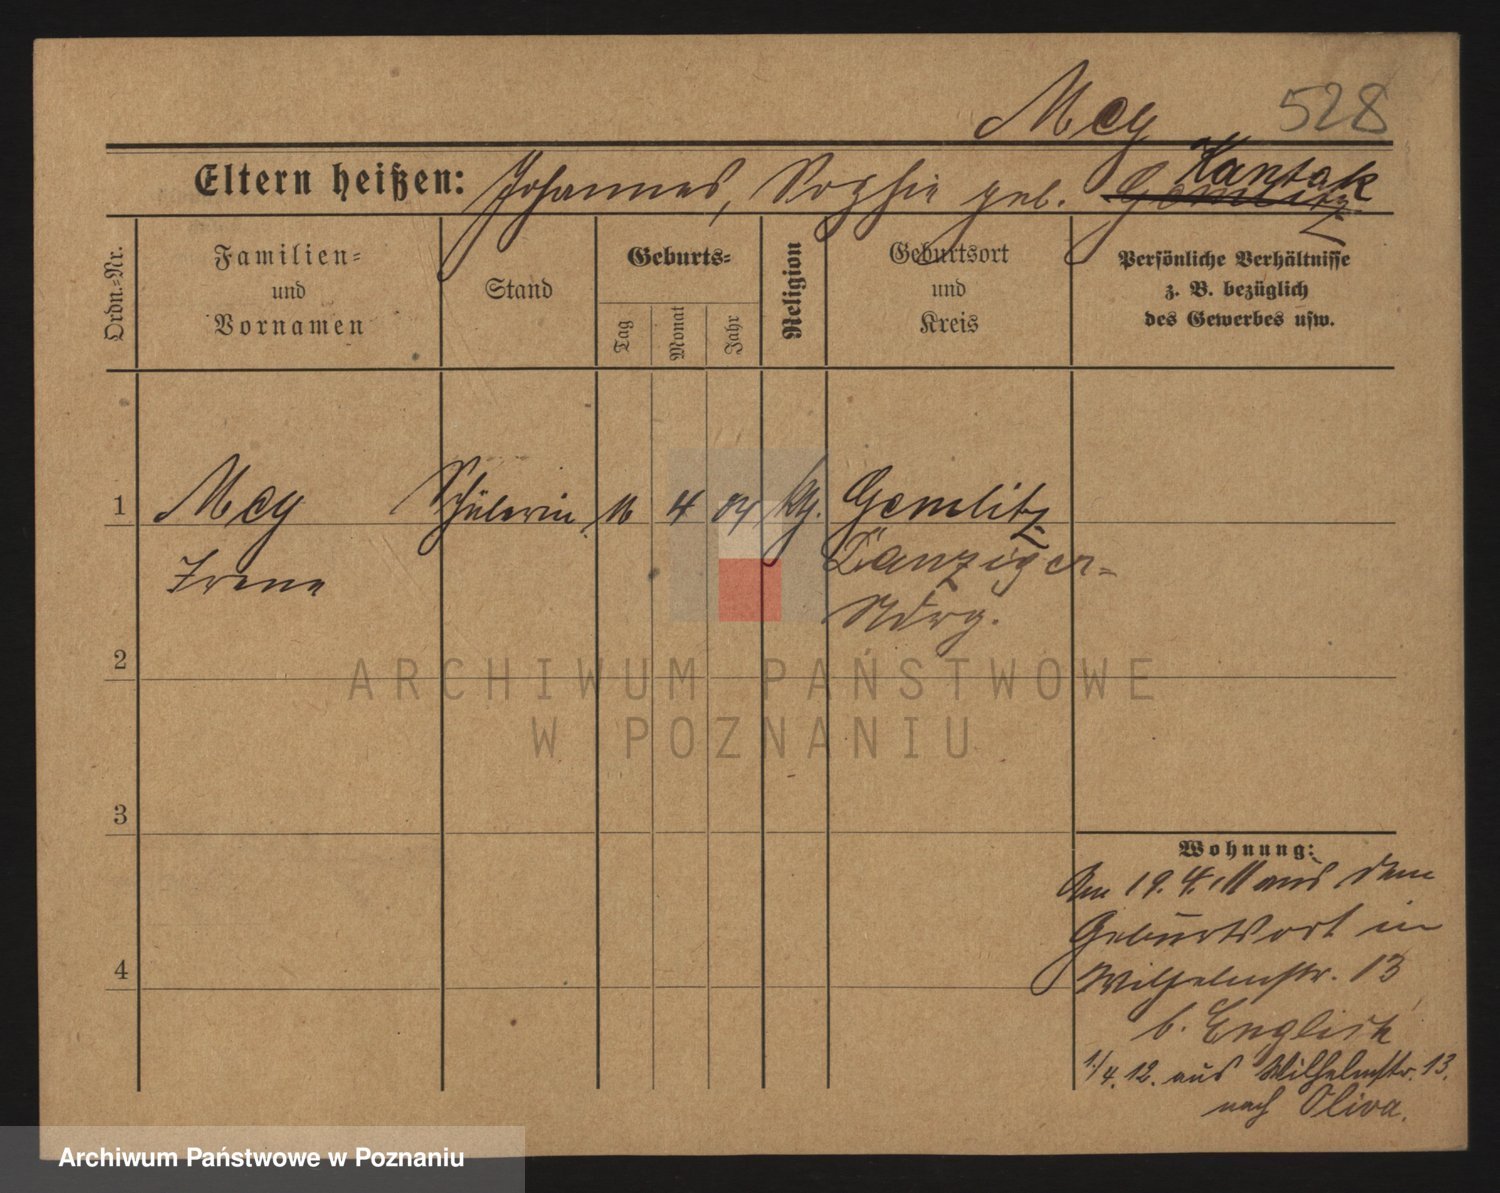 Mey 528
Eltern heißen: Johannes, Sophie geb. Gemlitz Kantak
Ordn.-Nr.
Familien-
und
Vornamen
Stand
Geburts-
Tag
Monat
Jahr
Religion
Geburtsort
und
Kreis
Persönliche Verhältnisse
z. B. bezüglich
des Gewerbes usw.
1 Mey Schülerin 16 4 94 kth. Gemlitz
Irene Danziger-
Ndrg.
2
ARCHIWUM PAŃSTWOWE
W POZNANIU
3
Wohnung:
Am 19.4.11 aus dem
Geburtsort in
4 Wilhelmstr. 13
b. Englisch
1/4.12. aus Wilhelmstr. 13.
nach Oliva.
Archiwum Państwowe w Poznaniu